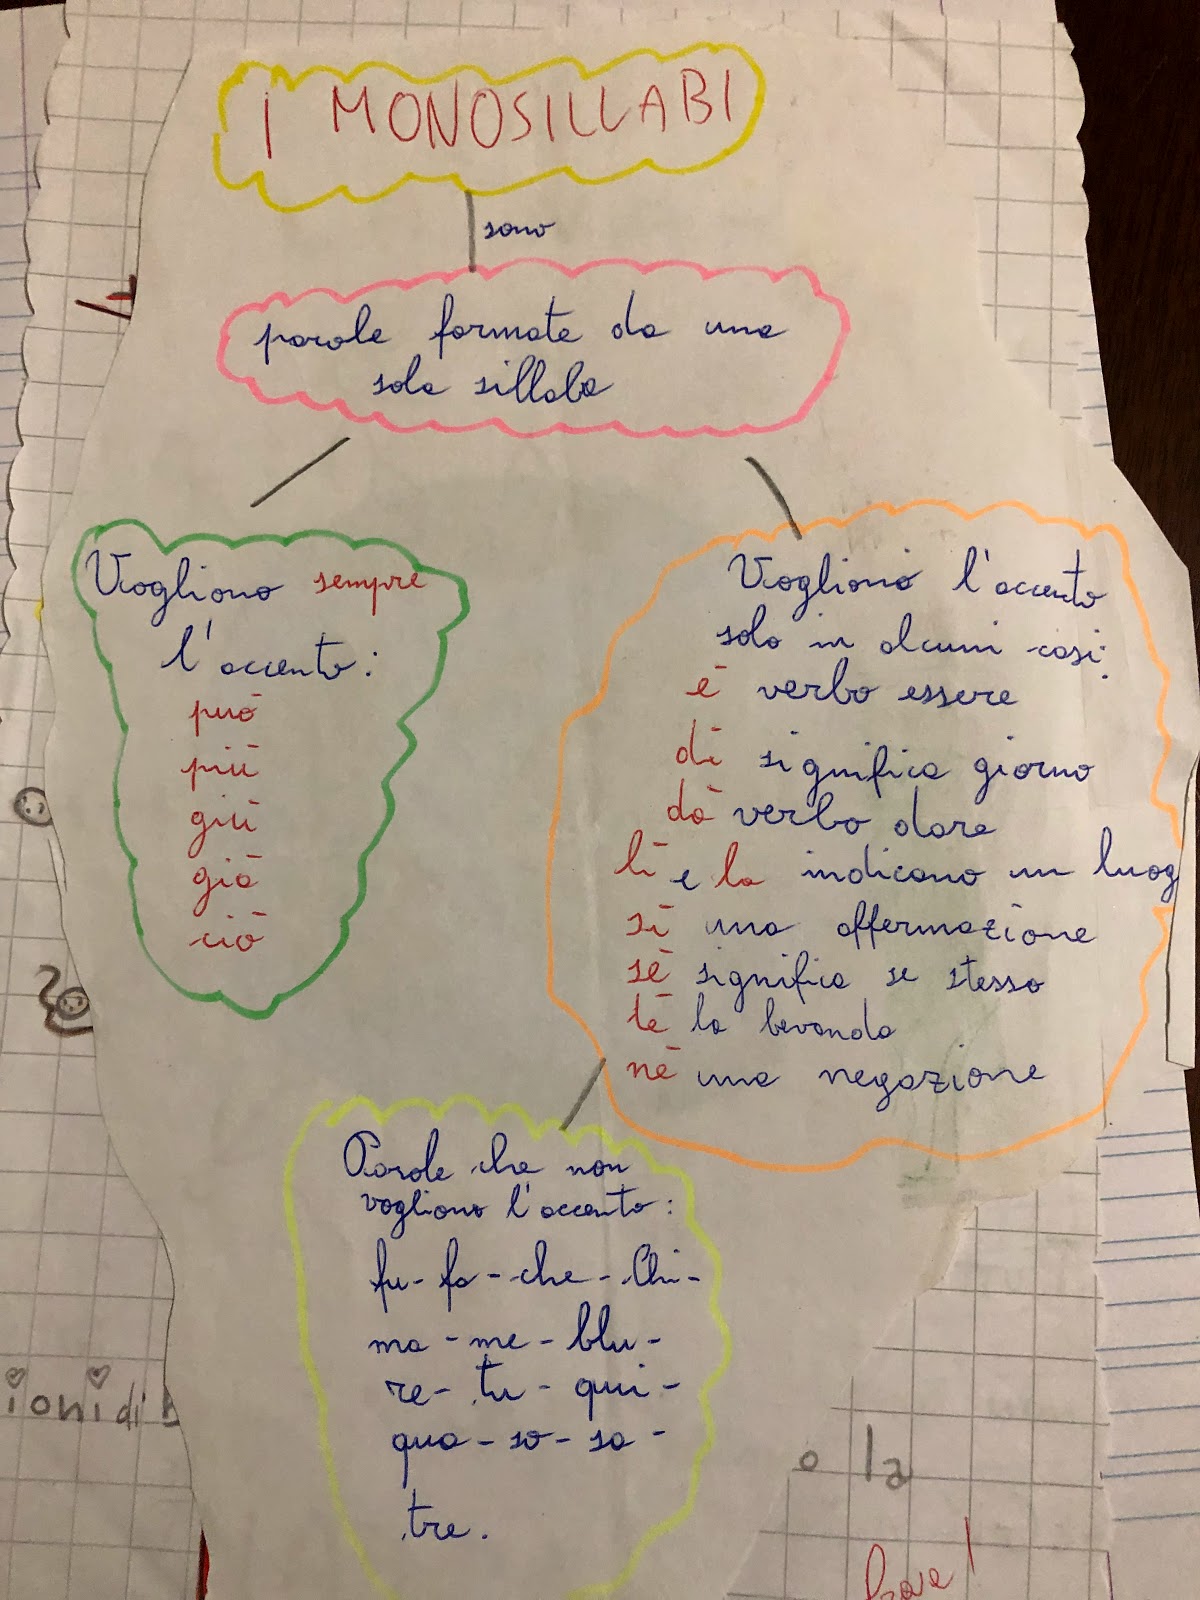 I MONOSILLABI
sono
parole formate da una
sola sillaba
Vogliono sempre
l'accento:
può
più
giù
già
ciò
Vogliono l'accento
solo in alcuni casi:
è verbo essere
dì significa giorno
dà verbo dare
lì e la indicano un luog
sì una affermazione
sé significa se stesso
tè la bevanda
né una negazione
Parole che non
vogliono l'accento:
fu - fa - che - Chi -
ma - me - blu -
re - tu - qui -
qua - so - sa -
tre.
ioni di
o la